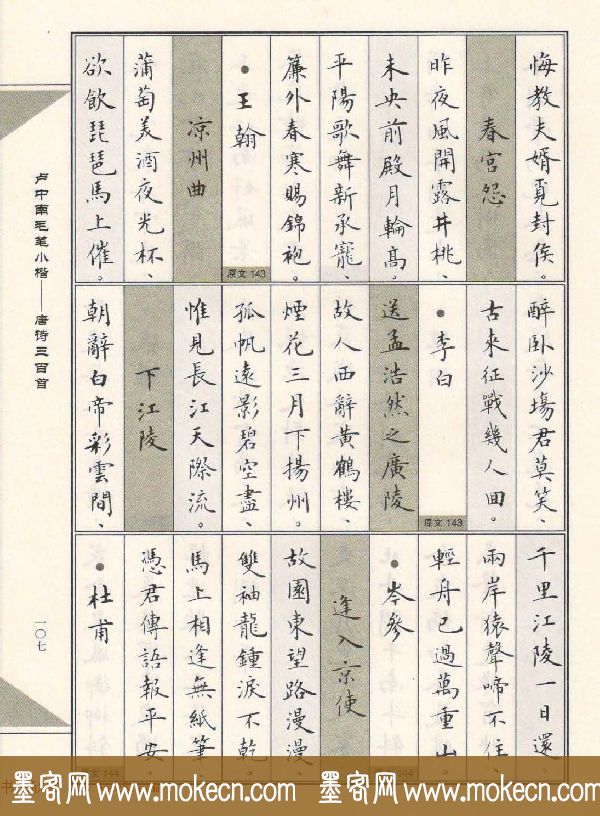 悔教夫婿覓封侯。
春宮怨
昨夜風開露井桃、
未央前殿月輪高。
平陽歌舞新承寵、
簾外春寒賜錦袍。
•王翰
原文 143
凉州曲
蒲萄美酒夜光杯、
欲飲琵琶馬上催。
醉卧沙場君莫笑、
古來征戰幾人回。
•李白
原文 143
送孟浩然之廣陵
故人西辭黃鶴樓、
煙花三月下揚州。
孤帆遠影碧空盡、
惟見長江天際流。
下江陵
朝辭白帝彩雲間、
千里江陵一日還。
兩岸猿聲啼不住、
輕舟已過萬重山。
•岑參
原文 144
逢入京使
故園東望路漫漫、
雙袖龍鍾淚不乾。
馬上相逢無紙筆、
憑君傳語報平安。
•杜甫
原文 144
卢中南毛笔小楷——唐诗三百首
一〇七
墨客网 www.mokecn.com 墨客网 www.mokecn.com